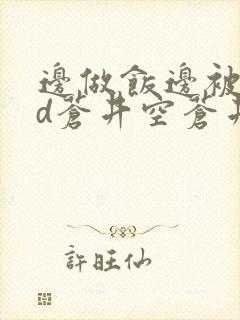 邊做飯邊被
d蒼井空蒼井
許旺仙